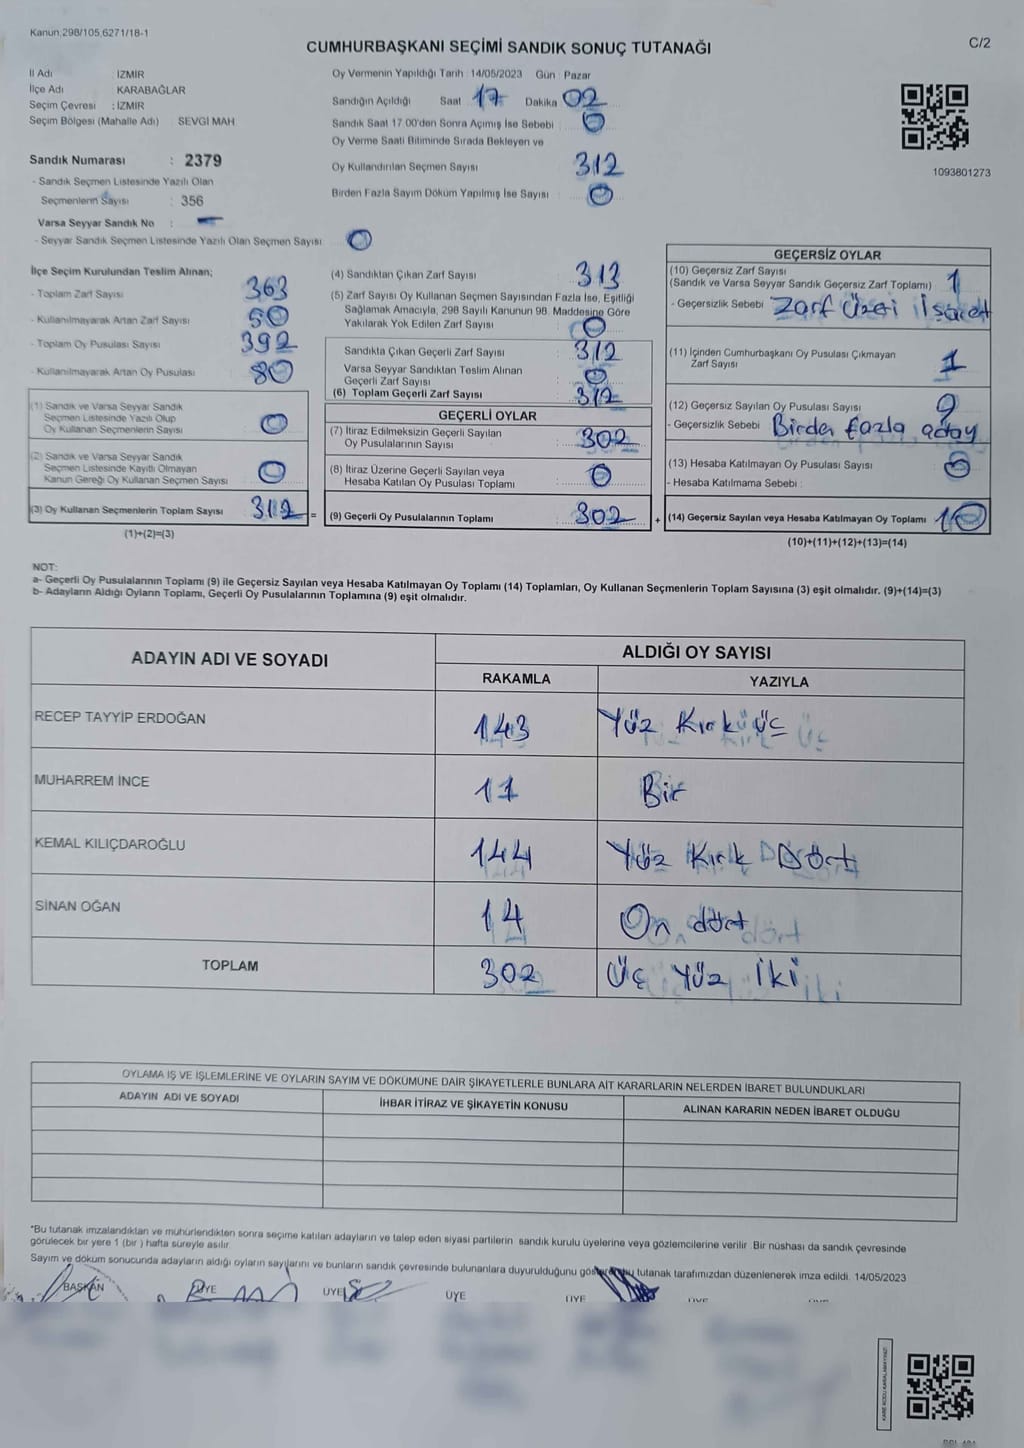 Kanun,298/105,6271/18-1
CUMHURBAŞKANI SEÇİMİ SANDIK SONUÇ TUTANAĞI
C/2
İl Adı : İZMİR
İlçe Adı KARABAĞLAR
Seçim Çevresi : İZMİR
Seçim Bölgesi (Mahalle Adı) : SEVGİ MAH.
Sandık Numarası : 2379
- Sandık Seçmen Listesinde Yazılı Olan
Seçmenlerin Sayısı : 356
Varsa Seyyar Sandık No : -
- Seyyar Sandık Seçmen Listesinde Yazılı Olan Seçmen Sayısı 0
Oy Vermenin Yapıldığı Tarih : 14/05/2023 Gün : Pazar
Sandığın Açıldığı Saat 17 Dakika 02
Sandık Saat 17 00'den Sonra Açımış İse Sebebi : 0
Oy Verme Saati Bitiminde Sırada Bekleyen ve
Oy Kullandırılan Seçmen Sayısı 312
Birden Fazla Sayım Döküm Yapılmış İse Sayısı : 0
1093801273
İlçe Seçim Kurulundan Teslim Alınan;
- Toplam Zarf Sayısı 363
- Kullanılmayarak Artan Zarf Sayısı 50
- Toplam Oy Pusulası Sayısı 392
- Kullanılmayarak Artan Oy Pusulası 80
(1) Sandık ve Varsa Seyyar Sandık
Seçmen Listesinde Yazılı Olup
Oy Kullanan Seçmenlerin Sayısı 0
(2) Sandık ve Varsa Seyyar Sandık
Seçmen Listesinde Kayıtlı Olmayan
Kanun Gereği Oy Kullanan Seçmen Sayısı : 0
(3) Oy Kullanan Seçmenlerin Toplam Sayısı 312 =
(1)+(2)=(3)
(4) Sandıktan Çıkan Zarf Sayısı : 313
(5) Zarf Sayısı Oy Kullanan Seçmen Sayısından Fazla İse, Eşitliği
Sağlamak Amacıyla, 298 Sayılı Kanunun 98. Maddesine Göre
Yakılarak Yok Edilen Zarf Sayısı : 0
Sandıkta Çıkan Geçerli Zarf Sayısı : 312
Varsa Seyyar Sandıktan Teslim Alınan
Geçerli Zarf Sayısı : 0
(6) Toplam Geçerli Zarf Sayısı : 312
GEÇERLİ OYLAR
(7) İtiraz Edilmeksizin Geçerli Sayılan
Oy Pusulalarının Sayısı : 302
(8) İtiraz Üzerine Geçerli Sayılan veya
Hesaba Katılan Oy Pusulası Toplamı : 0
(9) Geçerli Oy Pusulalarının Toplamı : 302 +
GEÇERSİZ OYLAR
(10) Geçersiz Zarf Sayısı
(Sandık ve Varsa Seyyar Sandık Geçersiz Zarf Toplamı) : 1
- Geçersizlik Sebebi : Zarf üzeri İşaret
(11) İçinden Cumhurbaşkanı Oy Pusulası Çıkmayan
Zarf Sayısı 1
(12) Geçersiz Sayılan Oy Pusulası Sayısı 9
- Geçersizlik Sebebi Birden fazla aday
(13) Hesaba Katılmayan Oy Pusulası Sayısı : 0
- Hesaba Katılmama Sebebi :
(14) Geçersiz Sayılan veya Hesaba Katılmayan Oy Toplamı 10
(10)+(11)+(12)+(13)=(14)
NOT:
a- Geçerli Oy Pusulalarının Toplamı (9) ile Geçersiz Sayılan veya Hesaba Katılmayan Oy Toplamı (14) Toplamları, Oy Kullanan Seçmenlerin Toplam Sayısına (3) eşit olmalıdır. (9)+(14)=(3)
b- Adayların Aldığı Oyların Toplamı, Geçerli Oy Pusulalarının Toplamına (9) eşit olmalıdır.
ADAYIN ADI VE SOYADI
ALDIĞI OY SAYISI
RAKAMLA YAZIYLA
RECEP TAYYİP ERDOĞAN 143 Yüz Kırk üç
MUHARREM İNCE 11 Bir
KEMAL KILIÇDAROĞLU 144 Yüz Kırk Dört
SİNAN OĞAN 14 On dört
TOPLAM 302 Üç Yüz İki
OYLAMA İŞ VE İŞLEMLERİNE VE OYLARIN SAYIM VE DÖKÜMÜNE DAİR ŞİKAYETLERLE BUNLARA AİT KARARLARIN NELERDEN İBARET BULUNDUKLARI
ADAYIN ADI VE SOYADI İHBAR İTİRAZ VE ŞİKAYETİN KONUSU ALINAN KARARIN NEDEN İBARET OLDUĞU
*Bu tutanak imzalandıktan ve mühürlendikten sonra seçime katılan adayların ve talep eden siyasi partilerin sandık kurulu üyelerine veya gözlemcilerine verilir. Bir nüshası da sandık çevresinde
görülecek bir yere 1 (bir ) hafta süreyle asılır.
Sayım ve döküm sonucunda adayların aldığı oyların sayılarını ve bunların sandık çevresinde bulunanlara duyurulduğunu gösteren bu tutanak tarafımızdan düzenlenerek imza edildi. 14/05/2023
BAŞKAN ÜYE ÜYE ÜYE ÜYE ÜYE ÜYE